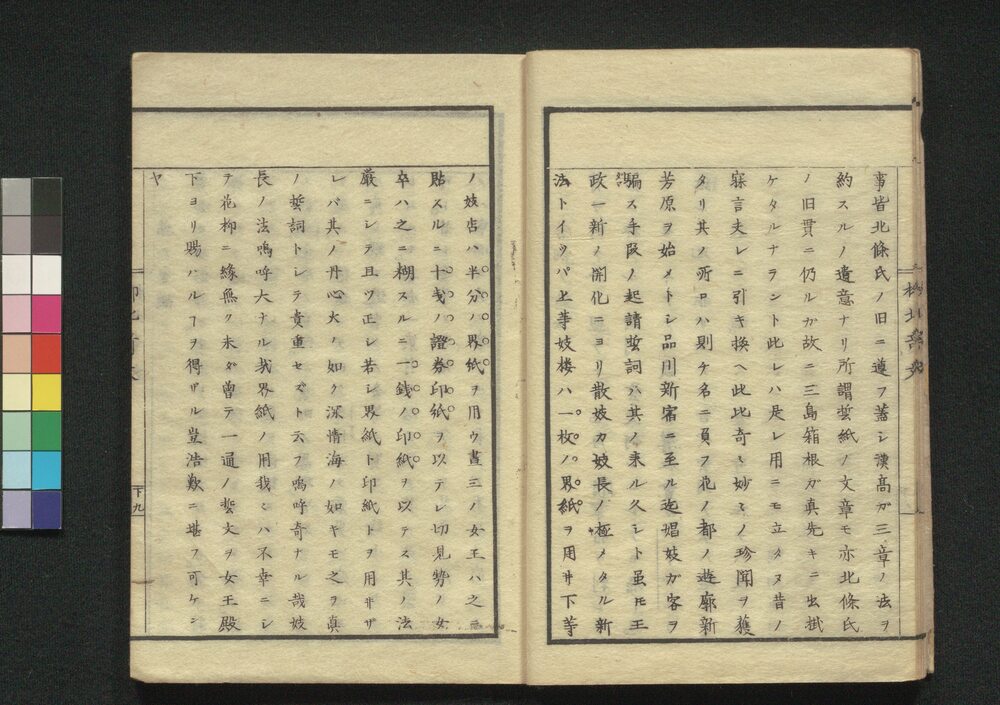 事皆北條氏ノ旧ニ遵フ蓋シ漢高ガ三章ノ法ヲ
約スルノ遺意ナリ所謂誓紙ノ文章モ亦北條氏
ノ旧貫ニ仍ルガ故ニ三島箱根ガ真先キニ出掛
ケタルナラント此レハ是レ用ニモ立タヌ昔ノ
寐言夫レニ引キ換ヘ此比奇々妙々ノ珍聞ヲ獲
タリ其ノ所ロハ則チ名ニ負フ花ノ都ノ遊廓新
芳原ヲ始メトシ品川新宿ニ至ル迄娼妓ガ客ヲ
騙ス手段ノ起請誓詞ハ其ノ来ル久シト虽𪜈王
政一新ノ開化ニヨリ散妓カ妓長ノ極メタル新
法トイツパ上等妓楼ハ一枚ノ界紙ヲ用井下等
ノ妓店ハ半分ノ界紙ヲ用ウ晝三ノ女王ハ之ニ
貼スルニ十戔ノ證券印紙ヲ以テシ切見勢ノ女
卒ハ之ニ糊スルニ一銭ノ印紙ヲ以テス其ノ法
厳ニシテ且ツ正シ若シ界紙ト印紙トヲ用井ザ
レバ其ノ丹心火ノ如ク深情海ノ如キモ之ヲ真
ノ誓詞トシテ貴重セズト云フ嗚呼奇ナル哉妓
長ノ法嗚呼大ナル哉界紙ノ用我々ハ不幸ニシ
テ花柳ニ縁無ク未ダ曽テ一通ノ誓文ヲ女王殿
下ヨリ賜ハルヿヲ得ザル豈浩歎ニ堪フ可ケン
ヤ
下九